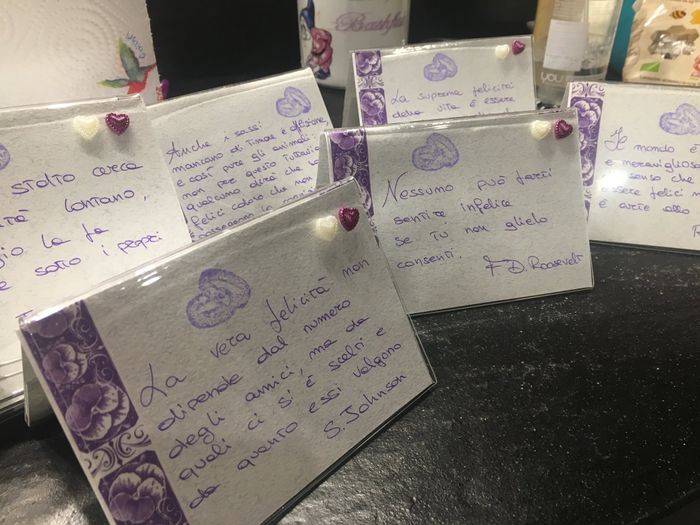 Bashful
YOU
La suprema felicità
della vita è essere
Anche i sassi
mancano di timore e afflizione,
e così pure gli animali:
non per questo tuttavia
qualcuno dirà che
felici coloro che non
stolto cerca
lontano,
la fa
sotto i propri
Nessuno può farti
sentire infelice
se tu non glielo
consenti.
F.D. Roosevelt
Il mondo è
meraviglioso
senso che
essere felici
è arte allo
La vera felicità non
dipende dal numero
degli amici, ma da
quali ci si è scelti e
da quanto essi valgono
S. Johnson